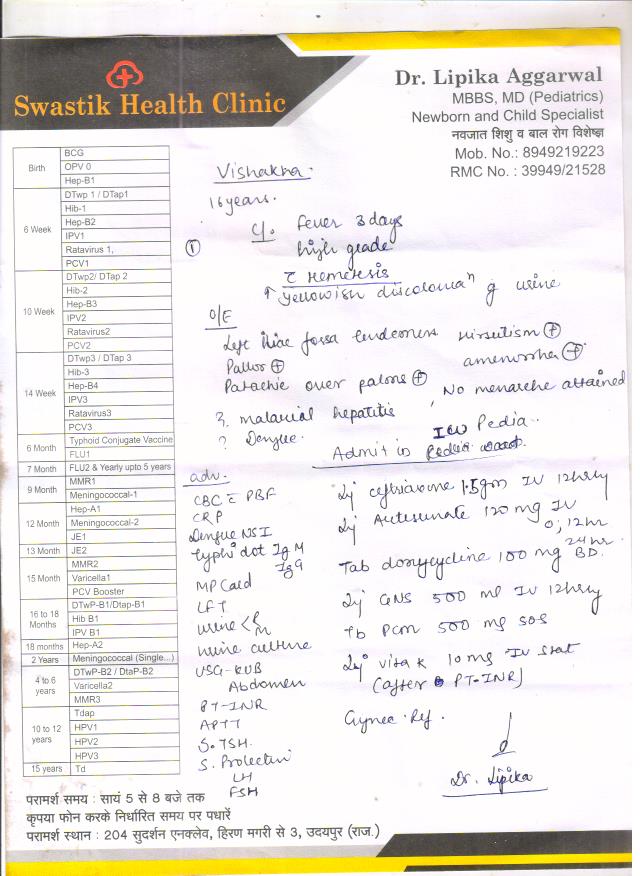 Swastik Health Clinic
Dr. Lipika Aggarwal
MBBS, MD (Pediatrics)
Newborn and Child Specialist
नवजात शिशु व बाल रोग विशेषज्ञ
Mob. No.: 8949219223
RMC No. : 39949/21528
Birth
BCG
OPV 0
Hep-B1
6 Week
DTwp 1 / DTap1
Hib-1
Hep-B2
IPV1
Ratavirus 1,
PCV1
10 Week
DTwp2/ DTap 2
Hib-2
Hep-B3
IPV2
Ratavirus2
PCV2
14 Week
DTwp3 / DTap 3
Hib-3
Hep-B4
IPV3
Ratavirus3
PCV3
6 Month
Typhoid Conjugate Vaccine
FLU1
7 Month
FLU2 & Yearly upto 5 years
9 Month
MMR1
Meningococcal-1
12 Month
Hep-A1
Meningococcal-2
JE1
13 Month
JE2
15 Month
MMR2
Varicella1
PCV Booster
16 to 18 Months
DTwP-B1/Dtap-B1
Hib B1
IPV B1
18 months
Hep-A2
2 Years
Meningococcal (Single...)
4 to 6 years
DTwP-B2 / DtaP-B2
Varicella2
MMR3
10 to 12 years
Tdap
HPV1
HPV2
HPV3
15 years
Td
Vishakha.
16 years.
① C/o. fever 3 days
high grade
c̄ Hemetesis
↑ yellowish discolornaⁿ of urine
O/E
Left iliac fossa tenderness Hirsutism ⊕
Pallor ⊕ amenorrhea ⊕
Petachie over palons ⊕ , No menarche attained
?. malarial hepatitis
? Dengue. ICU Pedia..
Admit in
adv.
CBC c̄ PBF
CRP
Dengue NSI
typhi dot IgM
IgG
MP Card
LFT
urine < R M
urine culture
USG-KUB
Abdomen
PT-INR
APTT
S. TSH.
S. Prolectin
LH
FSH
Inj ceftriaxone 1.5gm IV 12hrly
Inj Autesunate 120 mg IV
0, 12hr
24hr.
Tab doxycycline 100 mg BD.
Inj GNS 500 ml IV 12hrly
Tb PCM 500 mg SOS
Inj vita K 10 mg IV stat
(after PT-INR)
Gynec. Ref.
Dr. Lipika
परामर्श समय : सायं 5 से 8 बजे तक
कृपया फोन करके निर्धारित समय पर पधारें
परामर्श स्थान : 204 सुदर्शन एनक्लेव, हिरण मगरी से 3, उदयपुर (राज.)